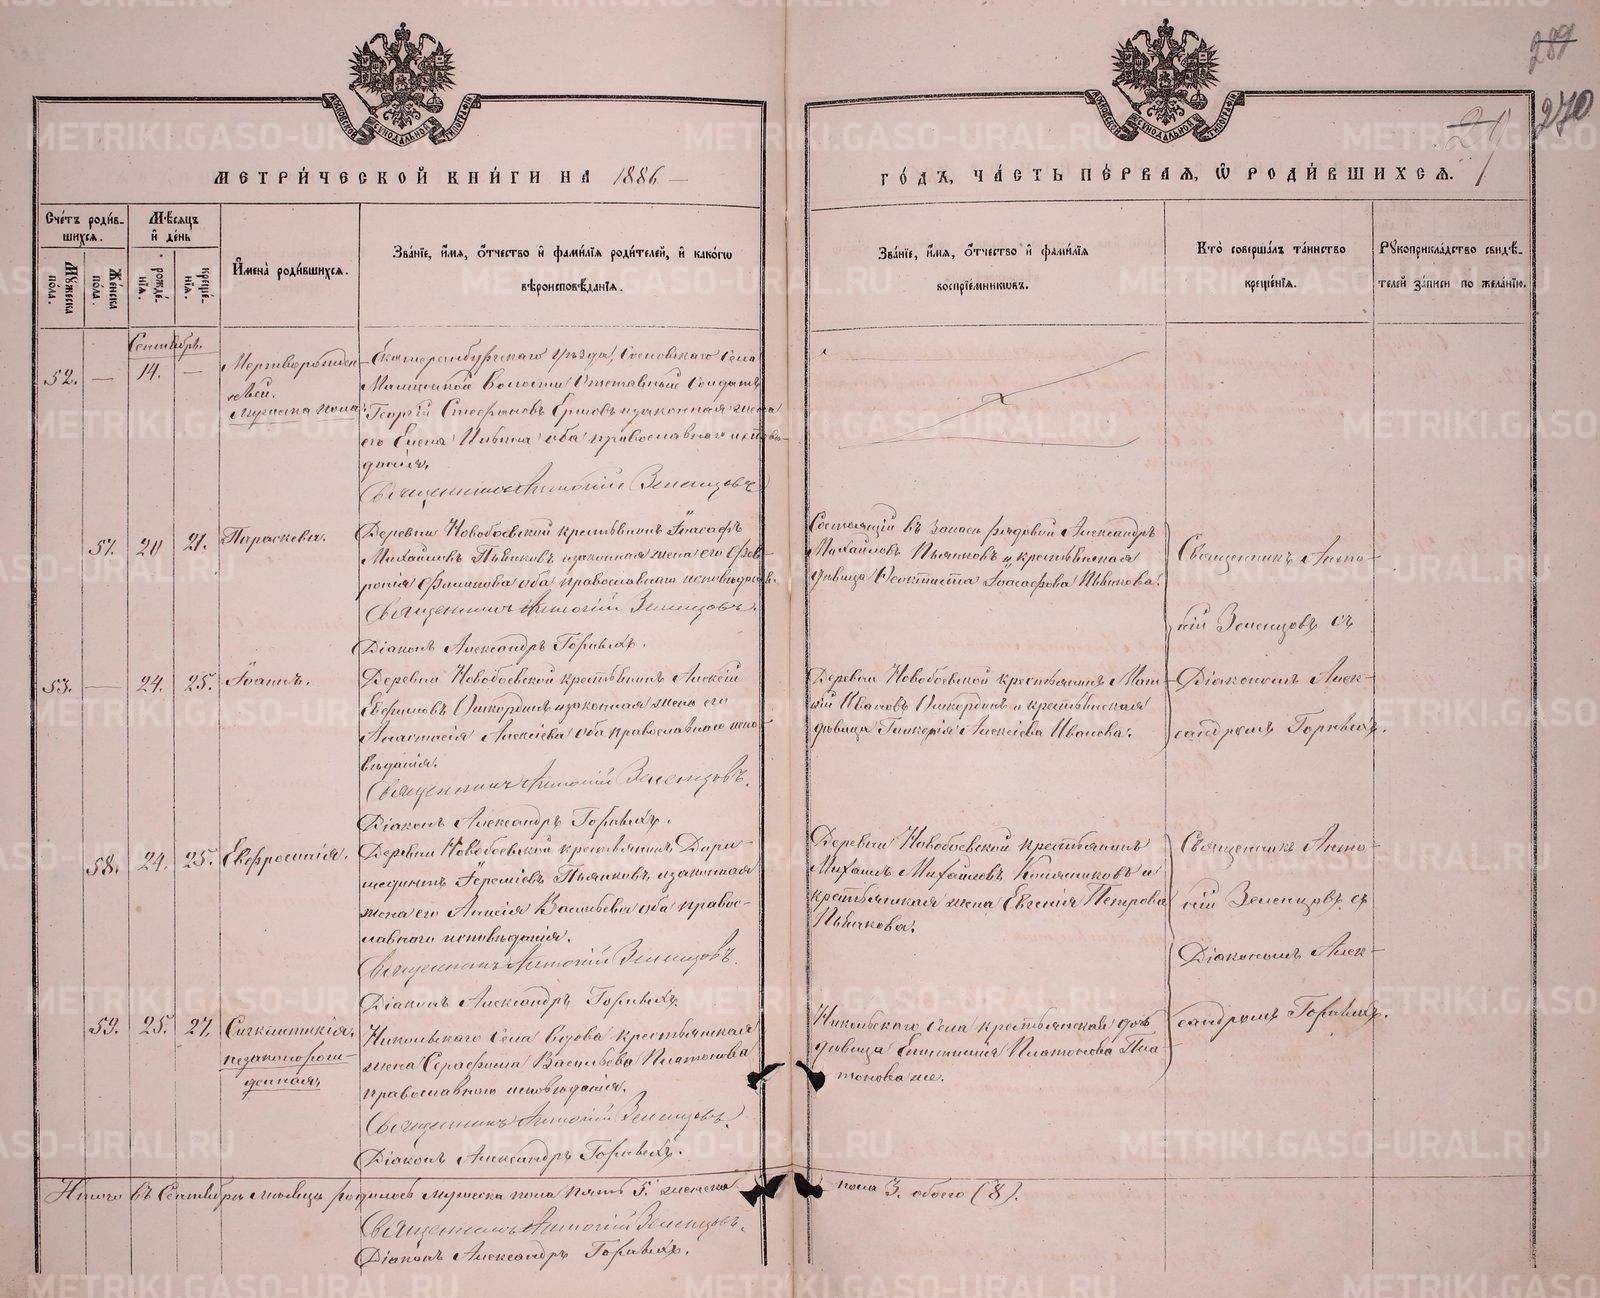 289
270
29
МЕТРИ́ЧЕСКОЙ КНИ́ГИ НА 1886
ГО́ДЪ, ЧА́СТЬ ПЕ́РВАЯ, Ѽ РОДИ́ВШИХСѦ.
Сче́тъ роди́в-
шихсѧ.
Мѣ́сѧцъ
и҆ де́нь
Мꙋ́жеска по́ла.
Же́нска по́ла.
рожде́-
нїѧ.
креще́-
нїѧ.
И҆мена̀ роди́вшихсѧ.
Зва́нїе, и҆́мѧ, ѻ҆́тчество и҆ фамі́лїѧ роди́телей, и҆ како́гѡ
вѣроисповѣ́данїѧ.
Зва́нїе, и҆́мѧ, ѻ҆́тчество и҆ фамі́лїѧ
воспрїе́мникѡвъ.
Кто̀ соверша́лъ та́инство
креще́нїѧ.
Рꙋкоприкла́дство свидѣ́-
телей за́писи по жела́нїю.
Сентябрь.
52. — 14. —
Мертворожден-
ный.
Мужеска пола
Екатеринбургскаго уѣзда, Сосновскаго села
волости Отставный Солдатъ
Георгій Стефановъ Ершовъ и законная жена
его Елена Ильина оба православнаго исповѣ-
данія.
Священникъ Антоній Зеленцовъ
57. 20 21. Параскева.
Деревни Новобоевской крестьянинъ Іоасафъ
Михайловъ Пьянковъ и законная жена его Фев-
ронія оба православнаго исповѣданія.
Священникъ Антоній Зеленцовъ.
Діаконъ Александръ Горныхъ.
Состоящій въ запасѣ рядовой Александръ
Михайловъ Пьянковъ и крестьянская
дѣвица Ѳеоктиста Іоасафова Пьянкова.
Священникъ Анто-
ній Зеленцовъ съ
53. — 24. 25. Іоаннъ.
Деревни Новобоевской крестьянинъ Алексій
Евфимовъ Ошкординъ и законная жена его
Анастасія Алексіева оба православнаго испо-
вѣданія.
Священникъ Антоній Зеленцовъ.
Діаконъ Александръ Горныхъ.
Деревни Новобоевской крестьянинъ
Ивановъ Ошкординъ и крестьянская
дѣвица Гликерія Алексіева Иванова.
Діакономъ Алек-
сандромъ Горныхъ.
58. 24. 25. Евфросинія.
Деревни Новобоевской крестьянинъ Дори-
медонтъ Іереміевъ Пьянковъ, и законная
жена его Анисія Васильева оба правос-
лавнаго исповѣданія.
Священникъ Антоній Зеленцовъ.
Діаконъ Александръ Горныхъ.
Деревни Новобоевской крестьянинъ
Михаилъ Михайловъ и
крестьянская жена Евгенія Петрова
Пьянкова.
Священникъ Анто-
ній Зеленцовъ съ
Діакономъ Алек-
сандромъ Горныхъ.
59. 25. 27. Синклитикія.
незаконорож-
денная.
Никольскаго Села вдова крестьянская
жена Серафима Васильева Платонова
православнаго исповѣданія.
Священникъ Антоній Зеленцовъ.
Діаконъ Александръ Горныхъ.
Никольскаго Села крестьянская дочь
дѣвица Платонова Пла-
тонова же.
Итого въ Сентябрѣ мѣсяцѣ родилось мужеска пола пять 5. женска пола 3. обоего (8).
Священникъ Антоній Зеленцовъ.
Діаконъ Александръ Горныхъ.
METRIKI.GASO-URAL.RU